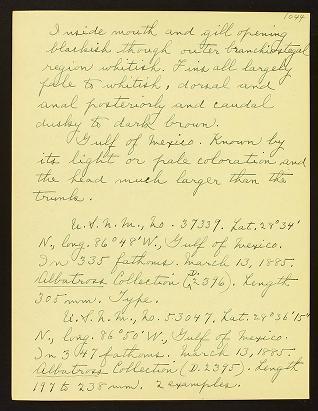 1044
Inside mouth and gill opening
blackish though outer branchiostegal
region whitish. Fins all largely
pale to whitish, dorsal and
anal posteriorly and caudal
dusky to dark brown.
Gulf of Mexico. Known by
its light or pale coloration and
the head much larger than the
trunk.
U.S.N.M., No. 37339. Lat. 28°34'
N., long. 86°48'W., Gulf of Mexico.
In 335 fathoms. March 13, 1885.
Albatross Collection (D. 2396). Length
305 mm. Type.
U.S.N.M., No. 53047. Lat. 28°36'15"
N., long. 86°50'W., Gulf of Mexico.
In 347 fathoms. March 13, 1885.
Albatross Collection (D. 2395). Length
197 to 238 mm. 2 examples.